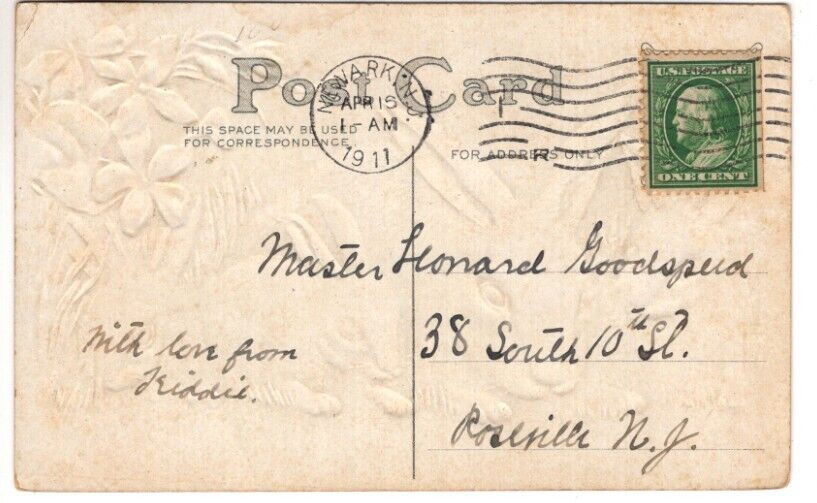 Post Card
THIS SPACE MAY BE USED
FOR CORRESPONDENCE
NEWARK, N.J.
APR 15
1-AM
1911
FOR ADDRESS ONLY
U.S. POSTAGE
ONE CENT
Master Leonard Goodspeed
38 South 10th St.
Roseville N.J.
With love from
Kiddie.